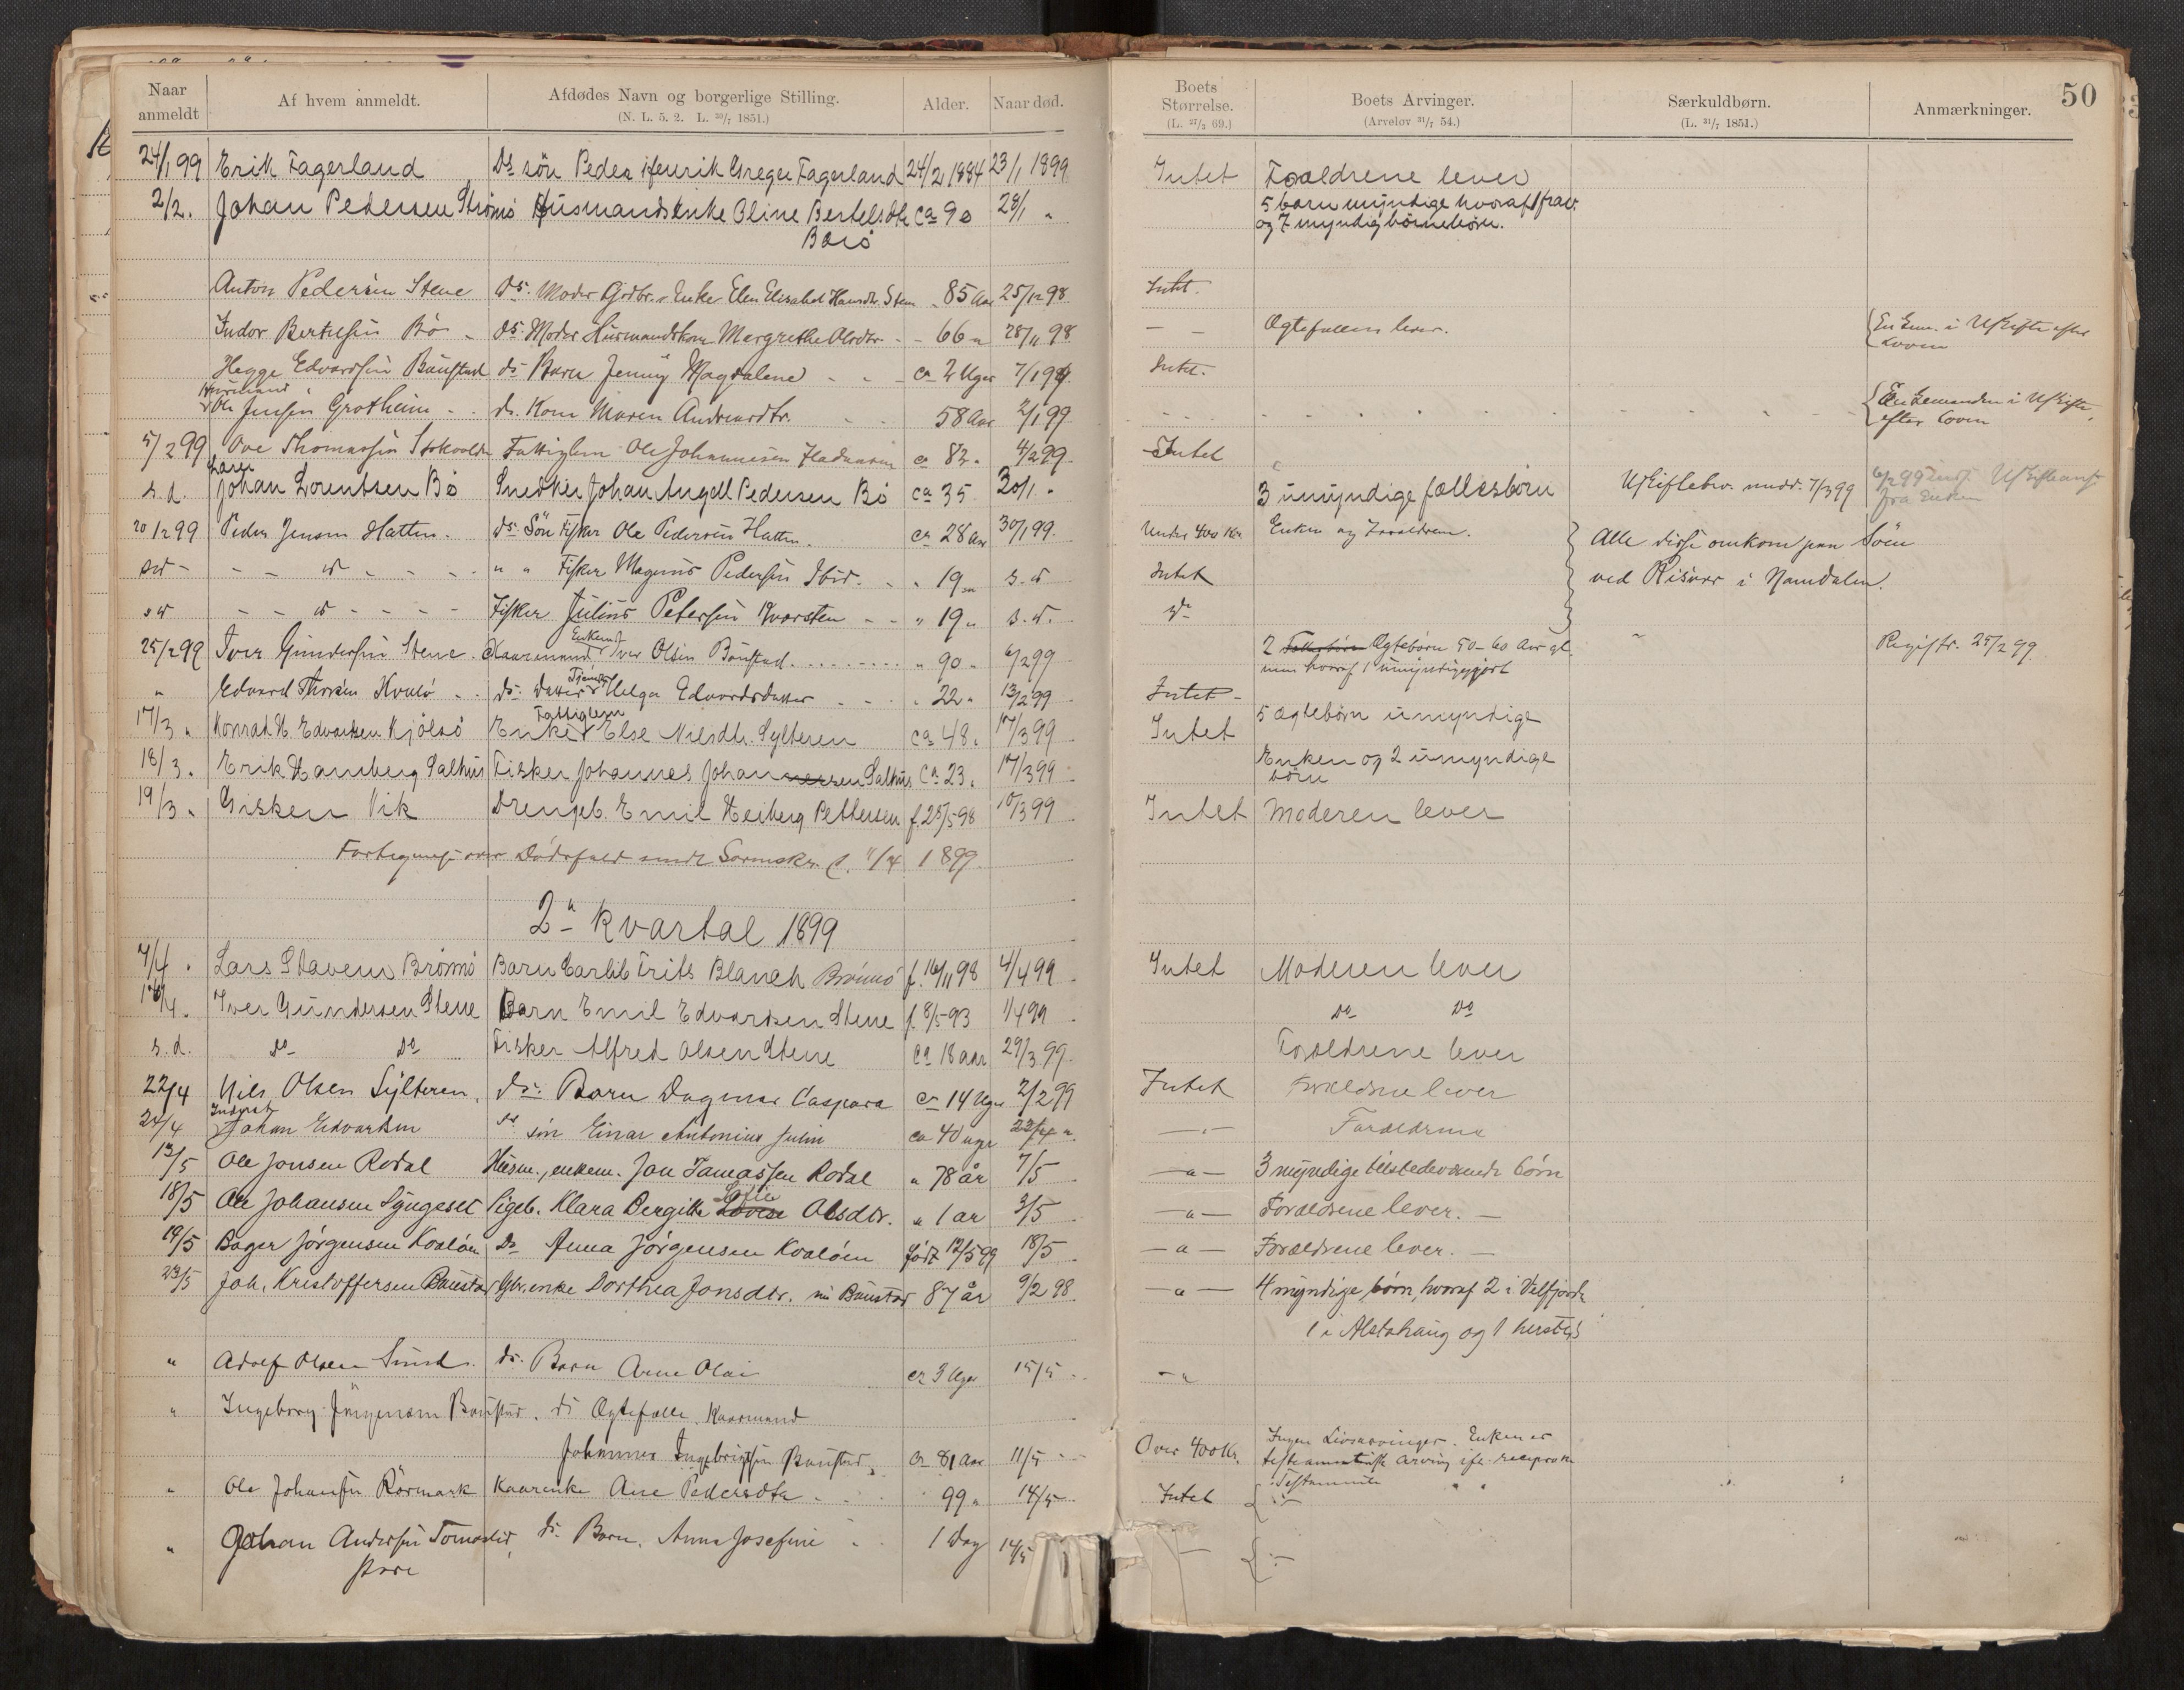 50
Naar anmeldt | Af hvem anmeldt. | Afdødes Navn og borgerlige Stilling. (N. L. 5. 2. L. 30/7 1851.) | Alder. | Naar død. | Boets Størrelse. (L. 27/3 69.) | Boets Arvinger. (Arvelov 31/7 54.) | Særkuldbørn. (L. 31/7 1851.) | Anmærkninger.
24/1 99 | Erik Fagerland | Ds søn Peder Henrik Greger Fagerland | 24/2 1884 | 23/1 1899 | Intet | Forældrene lever
2/2. | Johan Pedersen Strømø | Husmandsenke Oline Bertelsdtr | ca 90 | 28/1 " | | 5 barn myndige hvoraf 1 frav.
Barø | og 7 myndig børnebørn.
Anton Pedersen Stene | Ds. Moder Gdbr. Enke Elen Elisabet Hansdtr. Sten | 85 Aar | 25/12 98 | Intet.
Indor Bertelsen Bø | Ds. Moder Husmandskone Margrethe Olsdtr. | 66 " | 28/11 98 | — — | Ægtefællen lever. | Enkem. i Uskifte efter
Loven
Hegge Edvardsen Baustad | ds Barn Jenny Magdalene | ca 2 Uger | 7/1 99 | Intet.
Husmand
Ole Jensen Grotheim | ds. Kone Maren Andreasdtr. | 58 Aar | 2/1 99 | | | | Enkemanden i Uskifte
efter Loven
5/2 99 | Ove Thomassen | Fattiglem Ole Johannesen | ca 82 " | 4/2 99 | Intet
Lars
s. d. | Johan Lorentsen Bø | Snedker Johan Angell Pedersen Bø | ca 35 | 30/1 " | | 3 umyndige fællesbörn | Uskiftebev. medd. 7/3 99 | 6/2 99
fra Enken
20/2 99 | Peder Jensen Hatten. | Ds Søn Fisker Ole Pedersen Hatten. | ca 28 Aar | 30/1 99. | Under 400 Kr. | Enken og Forældrene. | Alle disse omkom paa Søen
sd | — — d — | " " Fisker Magnus Pedersen Ibid. | " 19 " | s. d. | Intet | | ved Risvær i Namdalen.
sd | — — d — | Fisker Julius Petersen Kvarsten | " 19 " | s. d. | Do
25/2 99 | Iver Gundersen Stene | Kaarmand Enkemd Iver Olsen Baustad | " 90 " | 6/2 99 | | 2 Ægtebørn 50–60 Aar gl.
hvoraf 1 umyndiggjort | | Registr. 25/2 99
" | Edvard Thorsen Kvalø | Ds. Datter Tjener Helga Edvardsdatter | " 22 " | 13/2 99 | Intet
17/3 " | Konrad H. Edvardsen Kjølsø | Enke Fattiglem Else Nilsdtr. Sylteren | ca 48 " | 17/3 99 | Intet | 5 ægtebörn umyndige
18/3. | Erik Hamberg Salhus | Fisker Johannes Johannessen Salhus | ca 23 " | 17/3 99 | | Enken og 2 umyndige
börn
19/3. | Gisken Vik | Drengeb. Emil Heiberg Pettersen | f. 28/5 98 | 10/3 99 | Intet | Moderen lever
Fortegnelse over Dödsfald sendt Sorenskr. d. 11/4 1899
2" kvartal 1899
7/4 " | Lars Stavem Brønnø | Barn Carlib Frits Blanch Brønnø | f. 16/11 98 | 4/4 99 | Intet | Moderen lever
17/4. | Iver Gundersen Stene | Barn Emil Edvardsen Stene | f. 8/5 93 | 1/4 99 | | Do Do
s. d. | Do Do | Fisker Alfred Olsen Stene | ca 18 aar | 29/3 99. | | Forældrene lever
22/4 | Nils Olsen Sylteren. | Ds. Barn Dagmar Caspara | ca 14 Uger | 2/2 99 | Intet | Forældrene lever
24/4 | Inderst Johan Edvardsen | ds søn Einar Antonius Julin | ca 40 uger | 22/4 " | — " — | Forældrene
13/5 | Ole Jonsen Rodal | Husm., enkem. Jon Tomassen Rodal | " 78 år | 7/5 | — " — | 3 myndige tilstedeværende børn
18/5 | Ole Johansen Syngeset | Pigeb. Klara Bergitte Lovise Olsdtr. | " 1 ar | 3/5 | — " — | Forældrene lever. —
19/5 | Bager Jørgensen Kvaløen | Do Anna Jörgensen Kvaløen | født 12/5 99 | 18/5 | — " — | Forældrene lever. —
23/5 | Joh. Kristoffersen Baustad | Gbr.enke Dorthea Jonsdtr. Baustad | 87 år | 9/2 98 | — " — | 4 myndige børn, hvoraf 2 i Velfjorden
1 i Alstahaug og 1 hersteds
" | Adolf Olsen Sund. | Ds. Barn Arne Olai | ca 3 Uger | 15/5 | — "
" | Ingeborg Jörgensen Baustad. | ds Ægtefælle Kaarmand
Johannes Ingebrigtsen Baustad | ca 81 Aar | 11/5 | Over 400 Kr. | Ingen Livsarvinger. Enken er
testamentarisk arving ifl. reciprok
Testamente
" | Ole Johansen Rørmark | Kaarenke Ane Pedersdtr | 99 " | 14/5 | Intet
" | Johan Andersen | ds. Barn. Anna Josefine | 1 Dag | 14/5